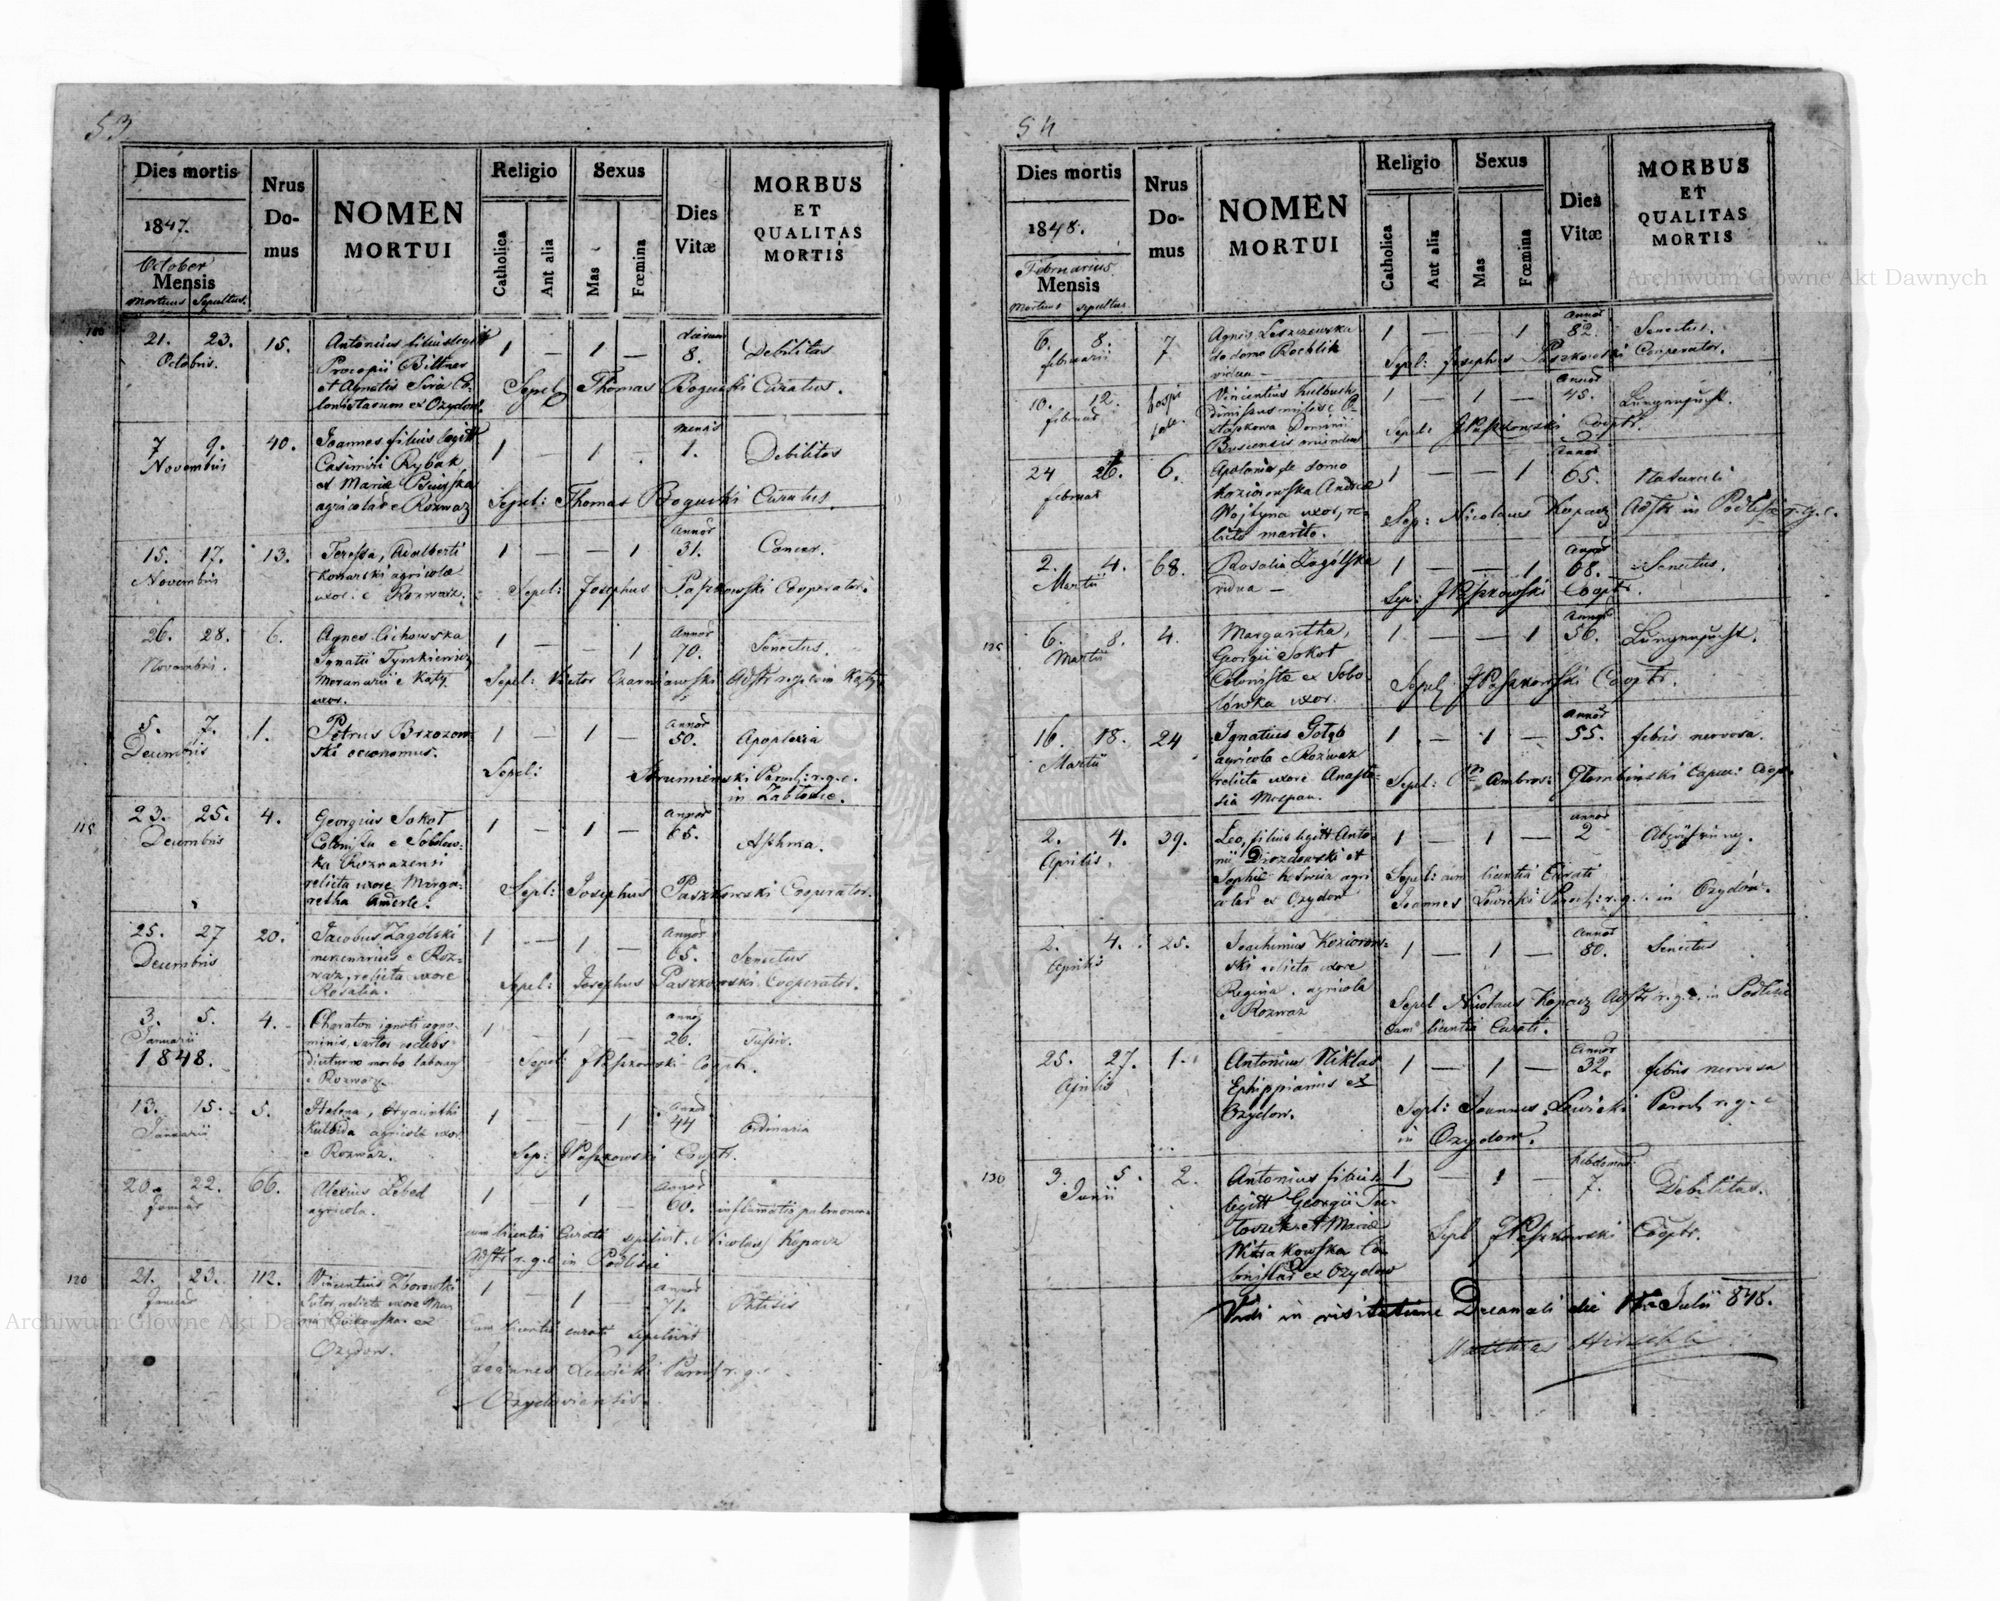 53
Dies mortis
Nrus Domus
NOMEN MORTUI
Religio
Sexus
Dies Vitæ
MORBUS ET QUALITAS MORTIS
1847.
October
Mensis
Mortuus Sepultus
Catholica
Aut alia
Mas
Fœmina
21. 23. 15. Antonius filius legitt 1 — 1 — dierum 8. Debilitas
Octobris. Procopii Bittner
et Agnetis
lonistarum ex Ozydow.
Sepel: Thomas Boguski Curatus.
7 9. 40. Joannes filius legitt 1 — 1 — mensis 1. Debilitas
Novembris Casimiri Rybak
et Mariæ
agricolar e Rozwaz
Sepel: Thomas Boguski Curatus.
15. 17. 13. Teressa, Adalberti 1 — — 1 Annor 31. Cancer.
Novembris Konarski agricolæ
uxor e Rozwaz.
Sepel: Josephus Paszkowski Cooperator.
26. 28. 6. Agnes Cichowska 1 — — 1 Annor 70. Senectus.
Novembris. Ignatii Tymkiewicz
e Kąty
uxor.
Sepel: Victor Czarniawski Adstr r.g. c. in Kąty
5. 7. 1. Petrus Brzozow- 1 — 1 — Annor 50. Apoplexia
Decembris ski oeconomus.
Sepel: Strumieński Paroch: r.g.c.
in Zabłotce.
115
23. 25. 4. Georgius Sokoł 1 — 1 — Annor 66. Asthma.
Decembris Colonista e Sobolow-
ka Rozwazensi
relicta uxore Marga-
retha Amerle.
Sepel: Josephus Paszkowski Cooperator.
25. 27 20. Jacobus Zagolski 1 — 1 — Annor 65. Senectus
Decembris mercenarius e Roz-
waz, relicta uxore
Rosalia.
Sepel: Josephus Paszkowski Cooperator.
3. 5. 4. Chariton ignoti cogno- 1 — 1 — annor 26. Tussis.
Januarii minis, sartor
1848. diuturno morbo laborans
e Rozwaz.
Sepel: J Paszkowski Cooptr.
13. 15. 5. Helena, Hyacinthi 1 — — 1 Annor 44 Ordinaria
Januarii Kulbida agricolæ uxor
e Rozwaz.
Sep: J Paszkowski Cooptr.
20. 22. 66. Alexius Lebed 1 — 1 — Annor 60. inflamatio pulmonum
Januar agricola.
cum licentia Curati sepelivit. Nicolaus Kopacz
Adstr r.g.c in Podlisie
120
21. 23. 112. Vincentius Zborowski 1 — 1 — Annor 71. Phtisis
Januar Sutor, relicta uxore
ex
Ozydow.
Cum licentia curati sepelivit
Joannes Lewicki Paroch r.g.c
Ozydoviensis.
54
Dies mortis
Nrus Domus
NOMEN MORTUI
Religio
Sexus
Dies Vitæ
MORBUS ET QUALITAS MORTIS
1848.
Februarius
Mensis
Mortuus sepultus
Catholica
Aut alia
Mas
Fœmina
6. 8. 7 Agnes Leszczowska 1 — — 1 Annor 82. Senectus.
februarii de domo Rochlik
vidua —
Sepel: Josephus Paszkowski Cooperator.
10. 12. hospi tale. Vincentius 1 — 1 — Annor 48. Lungensucht.
februar dimissus miles e
Dominii
Buscensis oriundus
Sepel: J Paszkowski Cooptr.
24 26. 6. Apolonia de domo 1 — — 1 Annor 65. Naturali
februar Koziorowska Andreæ
Wojtyna uxor, re-
licto marito.
Sep: Nicolaus Kopacz Adstr in Podlisie r.g.c.
2. 4. 68. Rosalia Zagólska 1 — — 1 Annor 68. Senectus.
Martii vidua —
Sep: J Paszkowski Cooptr.
125
6. 8. 4. Margaretha, 1 — — 1 Annor 56. Lungensucht.
Martii Georgii Sokoł
Colonistæ ex Sobo-
lówka uxor.
Sepel J Paszkowski Cooptr.
16. 18. 24 Ignatius Gołąb 1 — 1 — Annor 55. febris nervosa.
Martii agricola e Rozwaz
relicta uxore Anasta-
sia Mospan.
Sepel: Ambros: Glombinski Capuc: Coop.
2. 4. 39. Leo, filius legitt Anto- 1 — 1 — annor 2 Abzehrung.
Aprilis. nii Drozdowski et
Sophiæ agri
colar ex Ozydow
Sepel: cum licentia Curati
Joannes Lewicki Paroch: r.g.c. in Ozydów.
2. 4. 25. Joachimus Koziorow- 1 — 1 — Annor 80. Senectus
Aprilis ski relicta uxore
Regina, agricola
e Rozwaz
Sepel Nicolaus Kopacz Adstr r.g.c. in Podlisie
cum licentia Curati.
25. 27. 1. Antonius Niklas 1 — 1 — Annor 32. febris nervosa
Aprilis Ephippiarius ex
Ozydow.
Sepel: Joannes Lewicki Paroch r.g.c
in Ozydow.
130
3. 5. 2. Antonius filius 1 — 1 — hebdomad 7. Debilitas.
Junii legitt Georgii
et Mariæ
Co-
lonistar ex Ozydow
Sepel J Paszkowski Cooptr.
Vidi in visitatione Decanali die Julii 848.
Archiwum Główne Akt Dawnych
Archiwum Główne Akt Dawnych